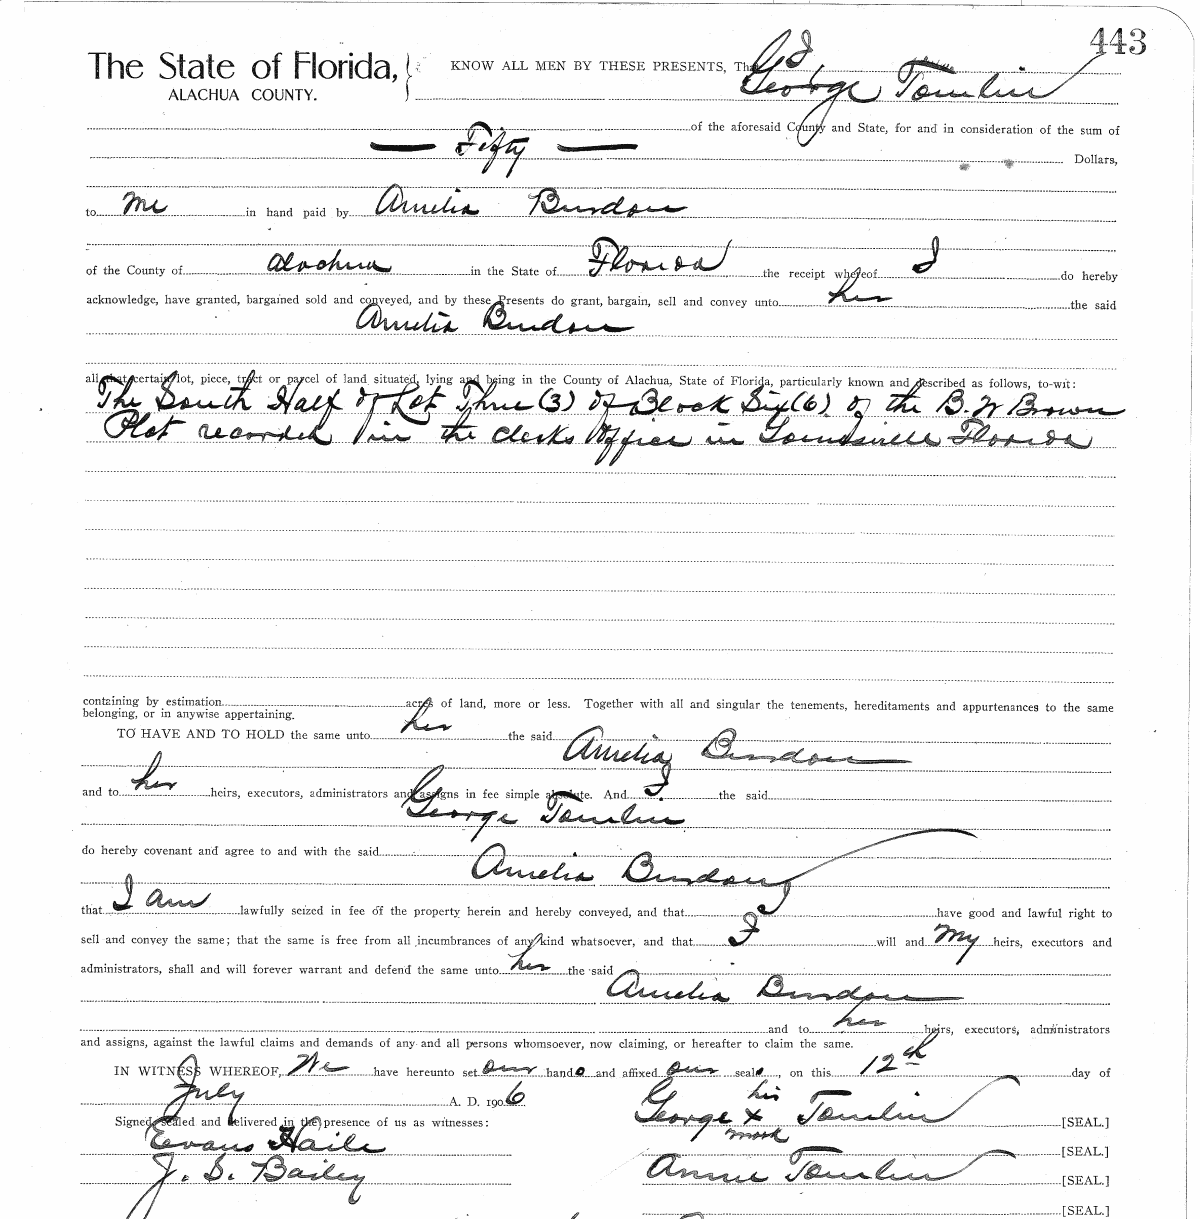 443
The State of Florida,
ALACHUA COUNTY.
KNOW ALL MEN BY THESE PRESENTS, That I,
George Tomlin
of the aforesaid County and State, for and in consideration of the sum of
Fifty Dollars,
to me in hand paid by Amelia Burdon
of the County of Alachua in the State of Florida the receipt whereof I do hereby
acknowledge, have granted, bargained sold and conveyed, and by these Presents do grant, bargain, sell and convey unto her the said
Amelia Burdon
all that certain lot, piece, tract or parcel of land situated, lying and being in the County of Alachua, State of Florida, particularly known and described as follows, to-wit:
The South Half of Lot Three (3) of Block Six (6) of the B. W Brown
Plat recorded in the clerks office in Gainesville Florida
containing by estimation acres of land, more or less. Together with all and singular the tenements, hereditaments and appurtenances to the same
belonging, or in anywise appertaining.
TO HAVE AND TO HOLD the same unto her the said Amelia Burdon
and to her heirs, executors, administrators and assigns in fee simple absolute. And I the said
George Tomlin
do hereby covenant and agree to and with the said Amelia Burdon
that I am lawfully seized in fee of the property herein and hereby conveyed, and that I have good and lawful right to
sell and convey the same; that the same is free from all incumbrances of any kind whatsoever, and that I will and my heirs, executors and
administrators, shall and will forever warrant and defend the same unto her the said
Amelia Burdon
and to her heirs, executors, administrators
and assigns, against the lawful claims and demands of any and all persons whomsoever, now claiming, or hereafter to claim the same.
IN WITNESS WHEREOF, We have hereunto set our hands and affixed our seals, on this 12th day of
July A. D. 1906
his
George x Tomlin [SEAL.]
mark
Signed, sealed and delivered in the presence of us as witnesses:
Evans Haile [SEAL.]
J. S. Bailey Annie Tomlin [SEAL.]
[SEAL.]